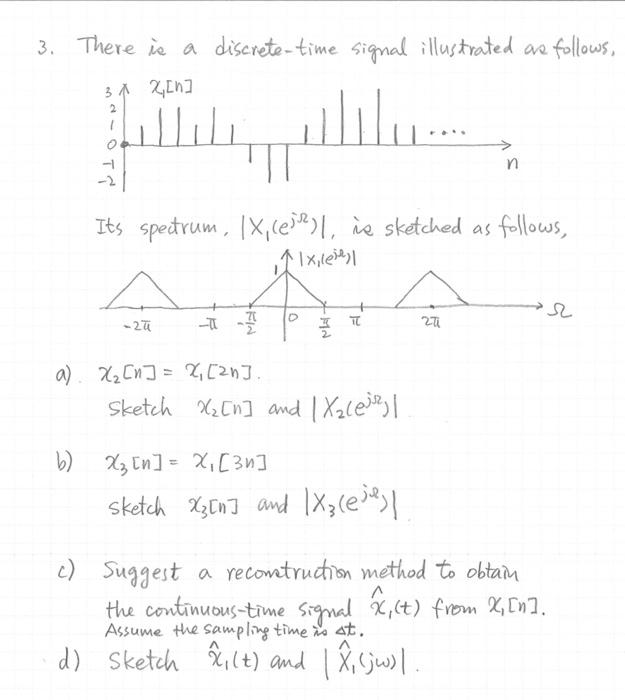 3. There is a discrete-time signal illustrated as follows,
x₁[n]
3
2
1
0
-1
-2
....
n
Its spectrum, |X₁(e^jΩ)|, is sketched as follows,
|X₁(e^jΩ)|
1
-2π -π -π/2 0 π/2 π 2π Ω
a). x₂[n] = x₁[2n].
Sketch x₂[n] and |X₂(e^jΩ)|
b) x₃[n] = x₁[3n]
sketch x₃[n] and |X₃(e^jΩ)|
c) Suggest a reconstruction method to obtain
the continuous-time signal x̂₁(t) from x₁[n].
Assume the sampling time is Δt.
d) Sketch x̂₁(t) and |X̂₁(jω)|.